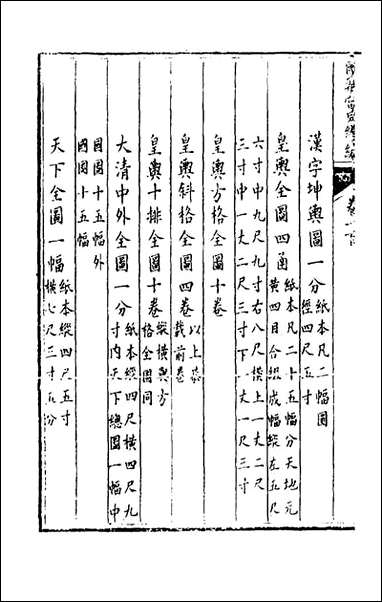 漢字坤輿圖一分
紙本凡二幅圓
經四尺五寸
皇輿全圖四函
紙本凡二十五幅分天地元
黃四目合綴成幅縱左五尺
六寸中九尺九寸右八尺橫上一丈二尺
三寸中一丈二尺三寸下一丈一尺三寸
皇輿方格全圖十卷
皇輿斜格全圖四卷
以上恭
載前卷
皇輿十排全圖十卷
縱橫與方
格全圖同
大清中外全圖一分
紙本縱四尺橫四尺九
寸內天下總圖一幅中
國圖十五幅外
國圖十五幅
天下全圖一幅
紙本縱四尺五寸
橫七尺三寸五分